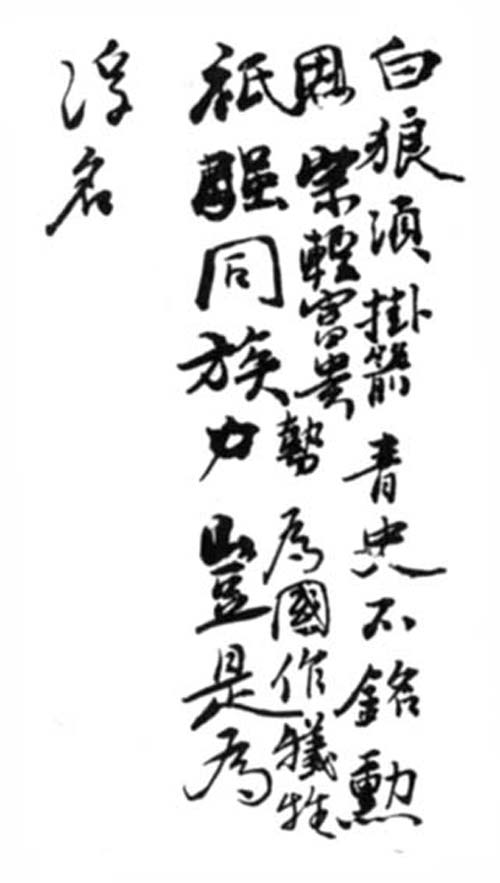 白狼須掛箭青史不銘勳
恩榮輕富貴勢為國作犧牲
祇驅同族力豈是為
浮名